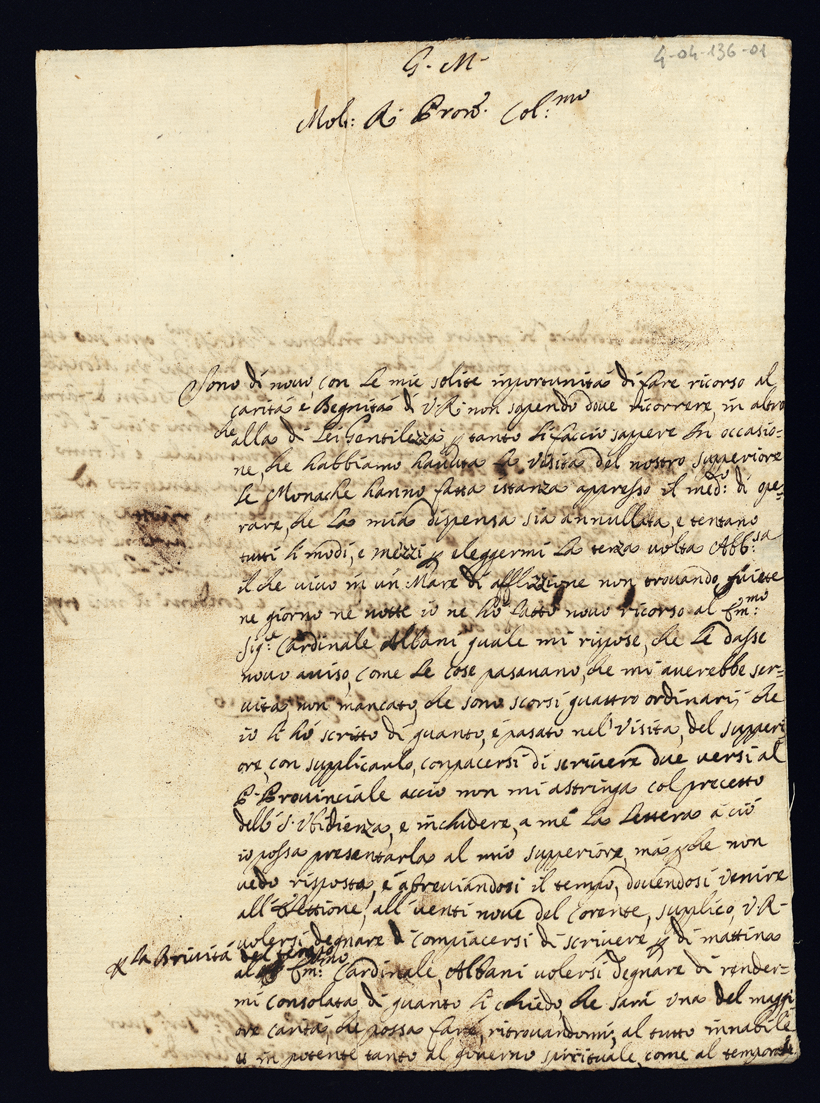 4-04-136-01
G. M.
Mol: R. Pron.e Col:mo
Sono di novo, con le mie solite inportunità di fare ricorso al
carità e Begnità di V.R. non sapendo dove ricorrere, in altro
che alla di Lei Gentilezza, p tanto li faccio sapere In occasio=
ne, che habbiamo havuta la Visita del nostro Supperiore
le Monache hanno fatta istanza apresso il med:o di ope=
rare, che la mia dispensa sia annullata, e tentano
tutti li modi, e mezzi p eleggermi la terza volta Abb:sa
il che vivo in un Mare di afflizione non trovando quiete
ne giorno ne notte io ne hò fatto novo ricorso al Em:mo
Sig:e Cardinale Albani quale mi rispose, che le dasse
novo aviso, come le cose pasavano, che mi averebbe ser=
vita, non mancato, che sono scorsi quattro ordinarij che
io li hò scritto di quanto, è pasato nel Visita, del supperi
ore, con supplicarlo, conpacersi di scrivere due versi al
P. Provinciale acciò non mi astringa col precetto
dell S. Vbidienza, e includere, a mè la lettera a ciò
io possa presentarla al mio supperiore, mà che non
vedo risposta, è abreviandosi il tempo, dovendosi venire
all Elettione, all venti nove del Corente, supplico, V.R.
volersi degnare di compiacersi di scrivere p di mattina
p la Brività del tempo
al Em:mo Cardinale, Albani volersi degnare di render=
mi consolata di quanto li chiedo, che sarà una del maggi
ore carità, che possa fare, ritrovandomi, al tutto innabile
in potente tanto al governo spirituale, come al temporale